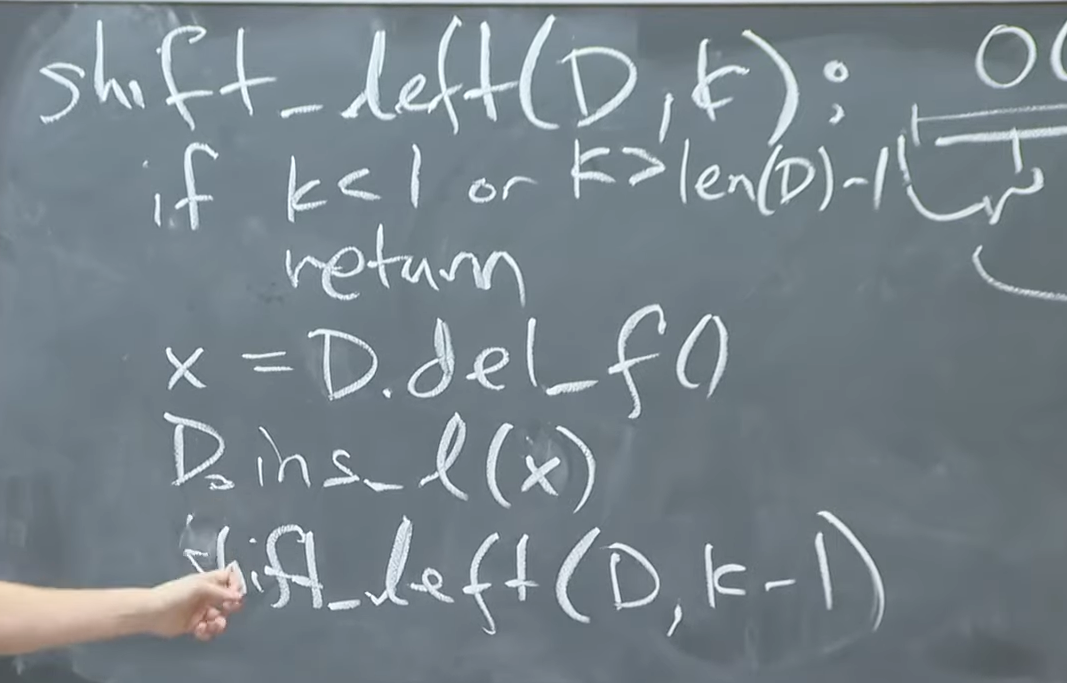 shift_left(D,k):
if k<1 or k>len(D)-1
return
x = D.del_f()
D.ins_l(x)
shift_left(D,k-1)